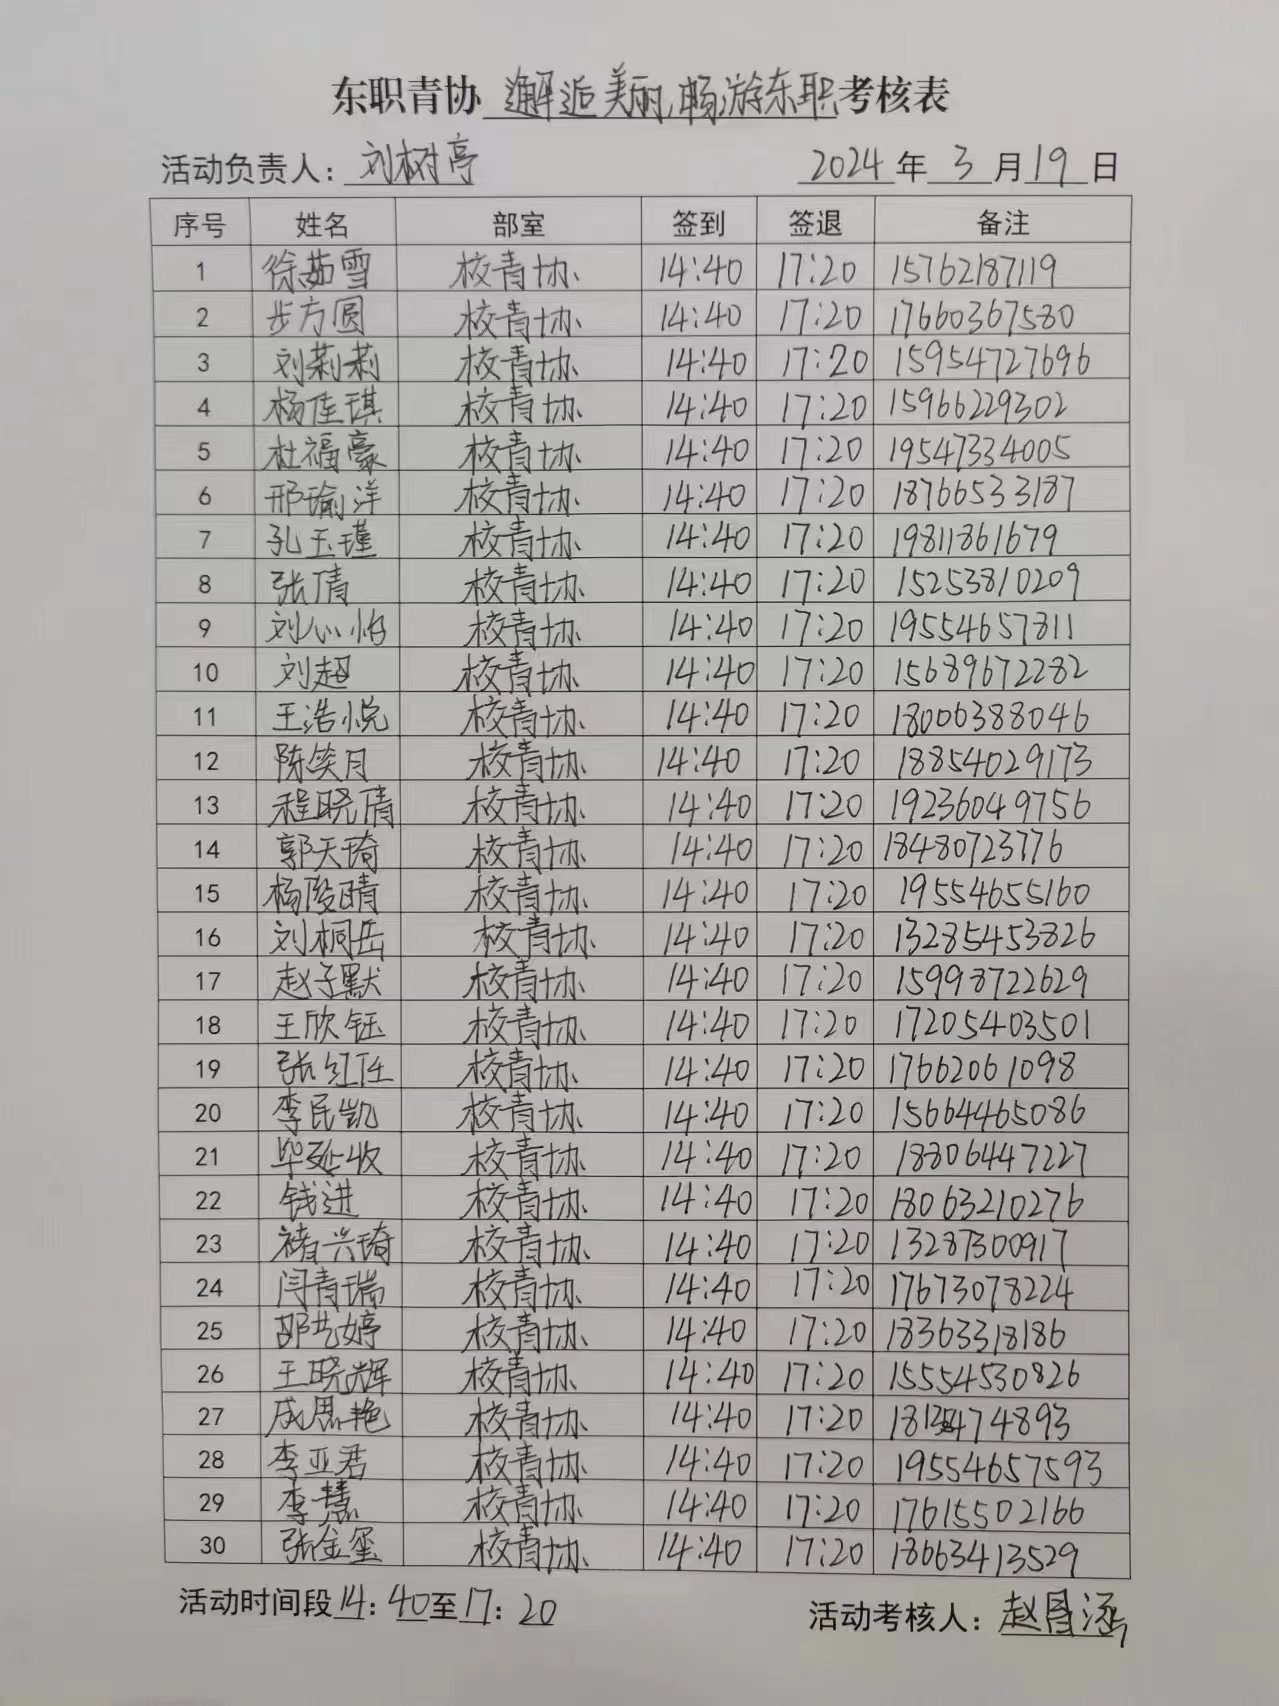 东职青协 邂逅美丽,畅游东职 考核表
活动负责人: 刘树亭 2024年3月19日
序号 姓名 部室 签到 签退 备注
1 徐茹雪 校青协 14:40 17:20 15762187119
2 步方圆 校青协 14:40 17:20 17660367580
3 刘莉莉 校青协 14:40 17:20 15954727696
4 杨佳琪 校青协 14:40 17:20 15966229302
5 杜福豪 校青协 14:40 17:20 19547334005
6 邢瑜洋 校青协 14:40 17:20 18766533187
7 孔玉瑾 校青协 14:40 17:20 19811861679
8 张倩 校青协 14:40 17:20 15253810209
9 刘心怡 校青协 14:40 17:20 19554657811
10 刘超 校青协 14:40 17:20 15689672282
11 王浩悦 校青协 14:40 17:20 18006388046
12 陈笑月 校青协 14:40 17:20 18854029173
13 程晓倩 校青协 14:40 17:20 19236049756
14 郭天琦 校青协 14:40 17:20 18480723776
15 杨俊晴 校青协 14:40 17:20 19554655160
16 刘桐岳 校青协 14:40 17:20 13285453826
17 赵子默 校青协 14:40 17:20 15998722629
18 王欣钰 校青协 14:40 17:20 17205403501
19 张红任 校青协 14:40 17:20 17662061098
20 李民凯 校青协 14:40 17:20 15664465086
21 毕延收 校青协 14:40 17:20 18806447227
22 钱进 校青协 14:40 17:20 18063210276
23 褚兴琦 校青协 14:40 17:20 13287300917
24 闫青瑞 校青协 14:40 17:20 17673078224
25 邵艺婷 校青协 14:40 17:20 18363318186
26 王晓辉 校青协 14:40 17:20 15554530826
27 成思艳 校青协 14:40 17:20
28 李亚君 校青协 14:40 17:20 19554657593
29 李慧 校青协 14:40 17:20 17615502166
30 张金玺 校青协 14:40 17:20 18663413529
活动时间段14:40至17:20 活动考核人: 赵昌涵